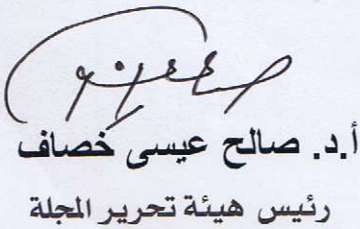 أ.د. صالح عيسى خصاف
رئيس هيئة تحرير المجلة